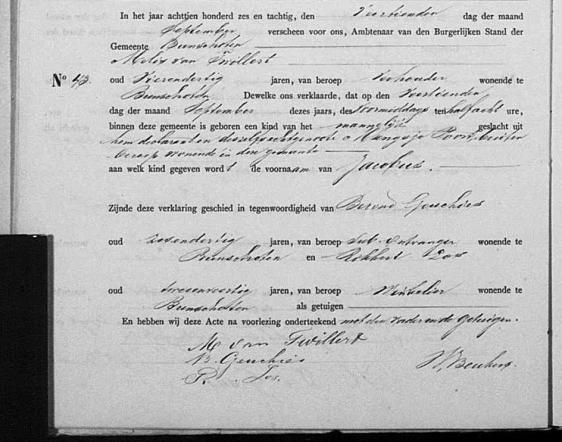 In het jaar achttien honderd zes en tachtig, den Veertienden dag der maand
September verscheen voor ons, Ambtenaar van den Burgerlijken Stand der
Gemeente Bunschoten
Melis van Twillert
No 43 oud Vierendertig jaren, van beroep Veehouder wonende te
Bunschoten Dewelke ons verklaarde, dat op den Veertienden
dag der maand September dezes jaars, des Voormiddags ten half acht ure,
binnen deze gemeente is geboren een kind van het mannelijk geslacht uit
hem declarant en deszelfs echtgenoote zonder
beroep wonende in deze gemeente
aan welk kind gegeven wordt de voornaam van Jacobus.
Zijnde deze verklaring geschied in tegenwoordigheid van Berend Geuchies
oud zesendertig jaren, van beroep Sub-Ontvanger wonende te
Bunschoten en
oud tweeenveertig jaren, van beroep Winkelier wonende te
Bunschoten als getuigen
En hebben wij deze Acte na voorlezing onderteekend met den vader en de getuigen.
M van Twillert
B. Geuchies